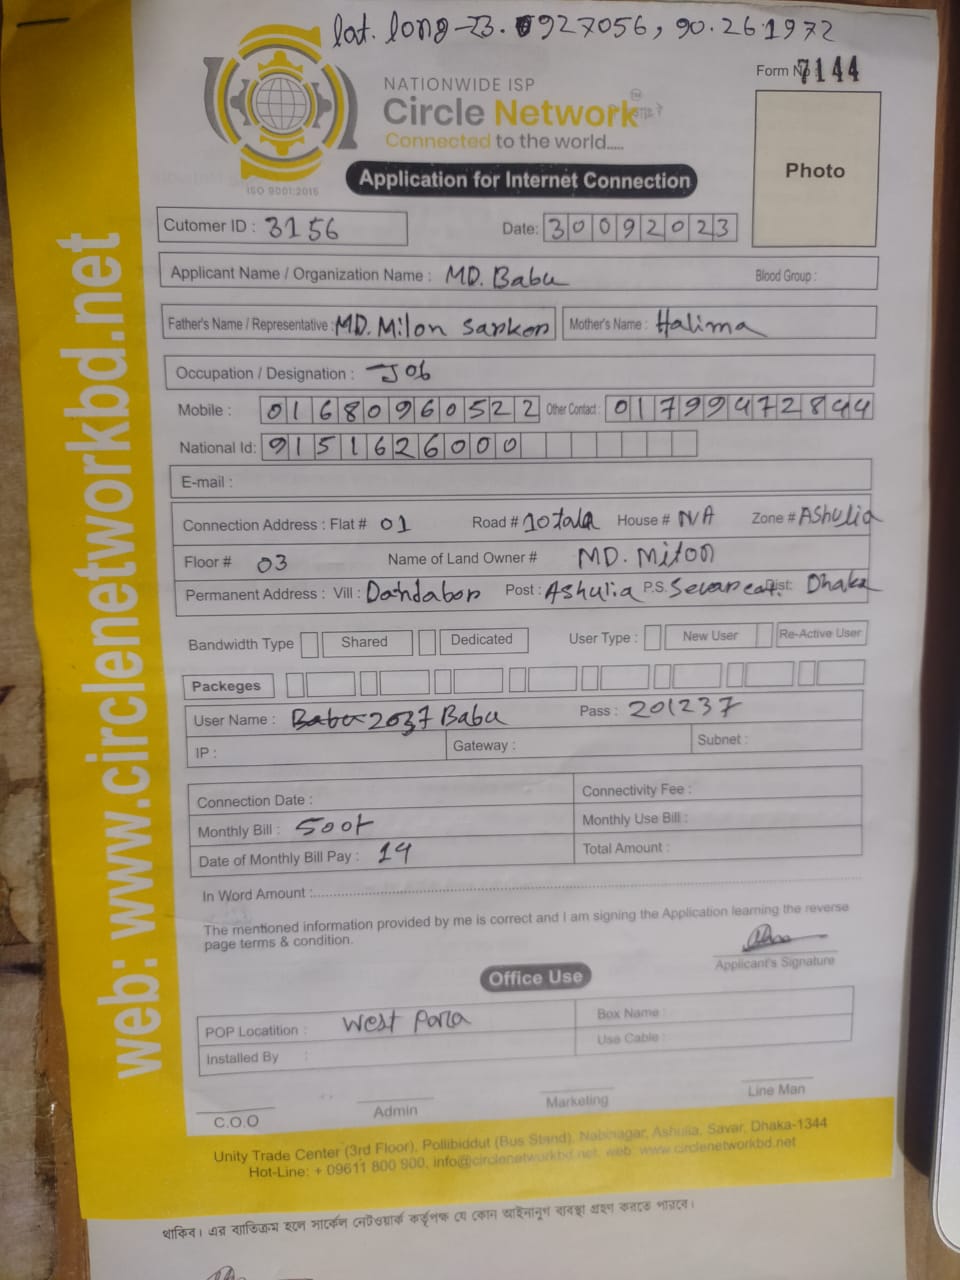 lat. long-23.0927056, 90.261972
Form No 7144
NATIONWIDE ISP
Circle Network
Connected to the world.....
ISO 9001:2015
Application for Internet Connection
Photo
Cutomer ID : 3156 Date: 30092023
Applicant Name / Organization Name : MD. Babu Blood Group :
Father's Name / Representative : MD. Milon Sarkar Mother's Name : Halima
Occupation / Designation : Job
Mobile : 01680960522 Other Contact : 01799472844
National Id: 9151626000
E-mail :
Connection Address : Flat # 01 Road # 10tala House # N/A Zone # AShulia
Floor # 03 Name of Land Owner # MD. Milon
Permanent Address : Vill : Post : Ashulia P.S. Dist: Dhaka
Bandwidth Type Shared Dedicated User Type : New User Re-Active User
Packeges
User Name : 2037 Babu Pass : 201237
IP : Gateway : Subnet :
Connection Date : Connectivity Fee :
Monthly Bill : 500 Monthly Use Bill :
Date of Monthly Bill Pay : 14 Total Amount :
In Word Amount :
The mentioned information provided by me is correct and I am signing the Application learning the reverse
page terms & condition.
Applicant's Signature
Office Use
POP Locatition : West Para Box Name :
Installed By : Use Cable :
C.O.O Admin Marketing Line Man
Unity Trade Center (3rd Floor), Pollibiddut (Bus Stand), Nabinagar, Ashulia, Savar, Dhaka-1344
Hot-Line: + 09611 800 900, info@circlenetworkbd.net, web: www.circlenetworkbd.net
থাকিব। এর ব্যতিক্রম হলে সার্কেল নেটওয়ার্ক কর্তৃপক্ষ যে কোন আইনানুগ ব্যবস্থা গ্রহণ করতে পারবে।
web: www.circlenetworkbd.net